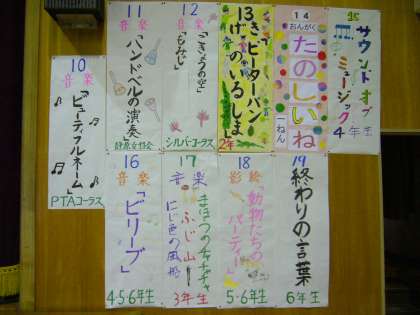 10
音楽
「ビューティフルネーム」
PTAコーラス
11
音楽
ハンドベルの演奏
静原女性会
12
音楽
「こきょうの空」
「もみじ」
シルバーコーラス
13
げき
ピーターパン
のいるしま
2年
14
おんがく
たのしいね
一ねん
15
サウンドオブ
ミュージック
4年生
16
音楽
「ビリーブ」
4・5・6年生
17
音楽
まほうのチャチャチャ
ふじ山
にじ色の風船
3年生
18
影絵
「動物たちの
パーティー」
5・6年生
19
終わりの言葉
6年生